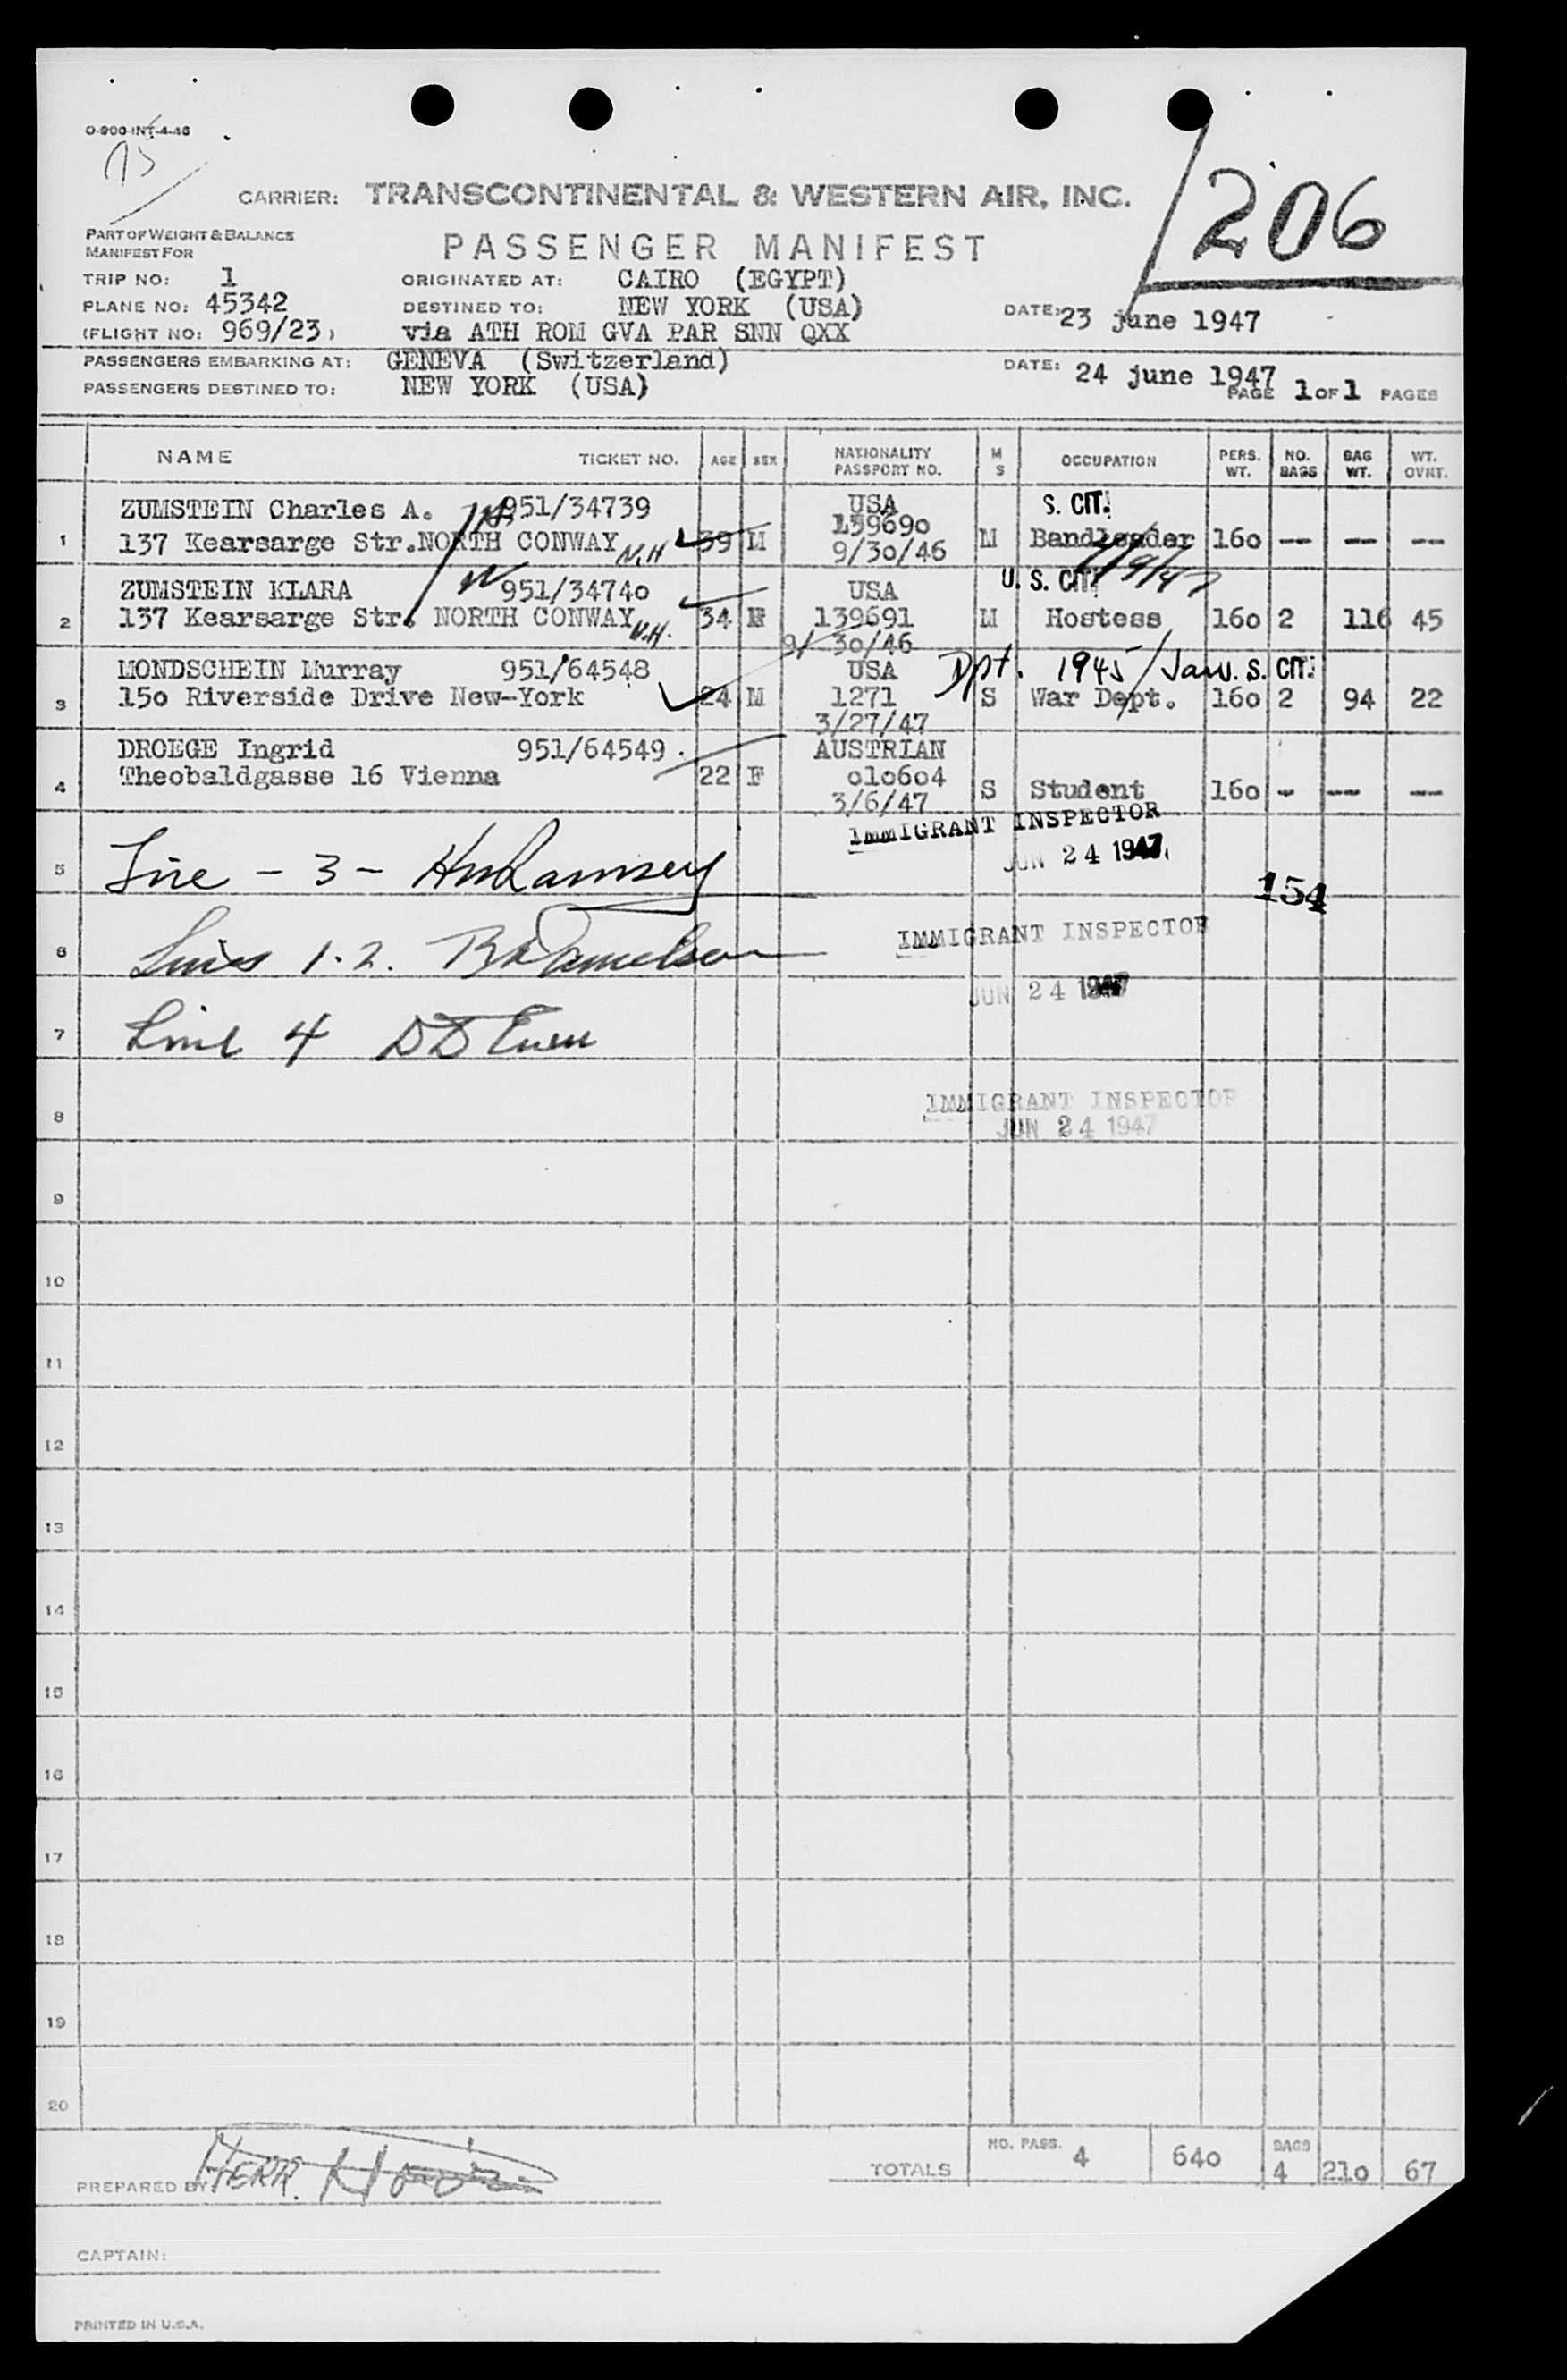 O-900-INT-4-46
CARRIER: TRANSCONTINENTAL & WESTERN AIR, INC.
206
PART OF WEIGHT & BALANCE
MANIFEST FOR
PASSENGER MANIFEST
TRIP NO: 1 ORIGINATED AT: CAIRO (EGYPT)
PLANE NO: 45342 DESTINED TO: NEW YORK (USA) DATE: 23 june 1947
(FLIGHT NO: 969/23) via ATH ROM GVA PAR SNN QXX
PASSENGERS EMBARKING AT: GENEVA (Switzerland) DATE: 24 june 1947
PASSENGERS DESTINED TO: NEW YORK (USA) PAGE 1 OF 1 PAGES
NAME TICKET NO. AGE SEX NATIONALITY PASSPORT NO. M S OCCUPATION PERS. WT. NO. BAGS BAG WT. WT. OVRT.
ZUMSTEIN Charles A. 951/34739 USA S. CIT.
139690
1 137 Kearsarge Str. NORTH CONWAY N.H 39 M 9/30/46 M Bandleader 160 -- -- --
ZUMSTEIN KLARA 951/34740 USA U. S. CIT.
2 137 Kearsarge Str. NORTH CONWAY N.H. 34 F 139691 M Hostess 160 2 116 45
9/30/46
MONDSCHEIN Murray 951/64548 USA Dpt. 1945/Jan. S. CIT.
3 150 Riverside Drive New-York 24 M 1271 S War Dept. 160 2 94 22
3/27/47
DROEGE Ingrid 951/64549 AUSTRIAN
4 Theobaldgasse 16 Vienna 22 F 010604 S Student 160 - -- --
3/6/47
IMMIGRANT INSPECTOR
JUN 24 1947
5 Line - 3 - HmRamsey
154
IMMIGRANT INSPECTOR
6 Lines 1.2.
JUN 24 1947
7 Line 4
IMMIGRANT INSPECTOR
8
JUN 24 1947
9
10
11
12
13
14
15
16
17
18
19
20
TOTALS NO. PASS. 4 640 BAGS 4 210 67
PREPARED BY HERR.
CAPTAIN:
PRINTED IN U.S.A.